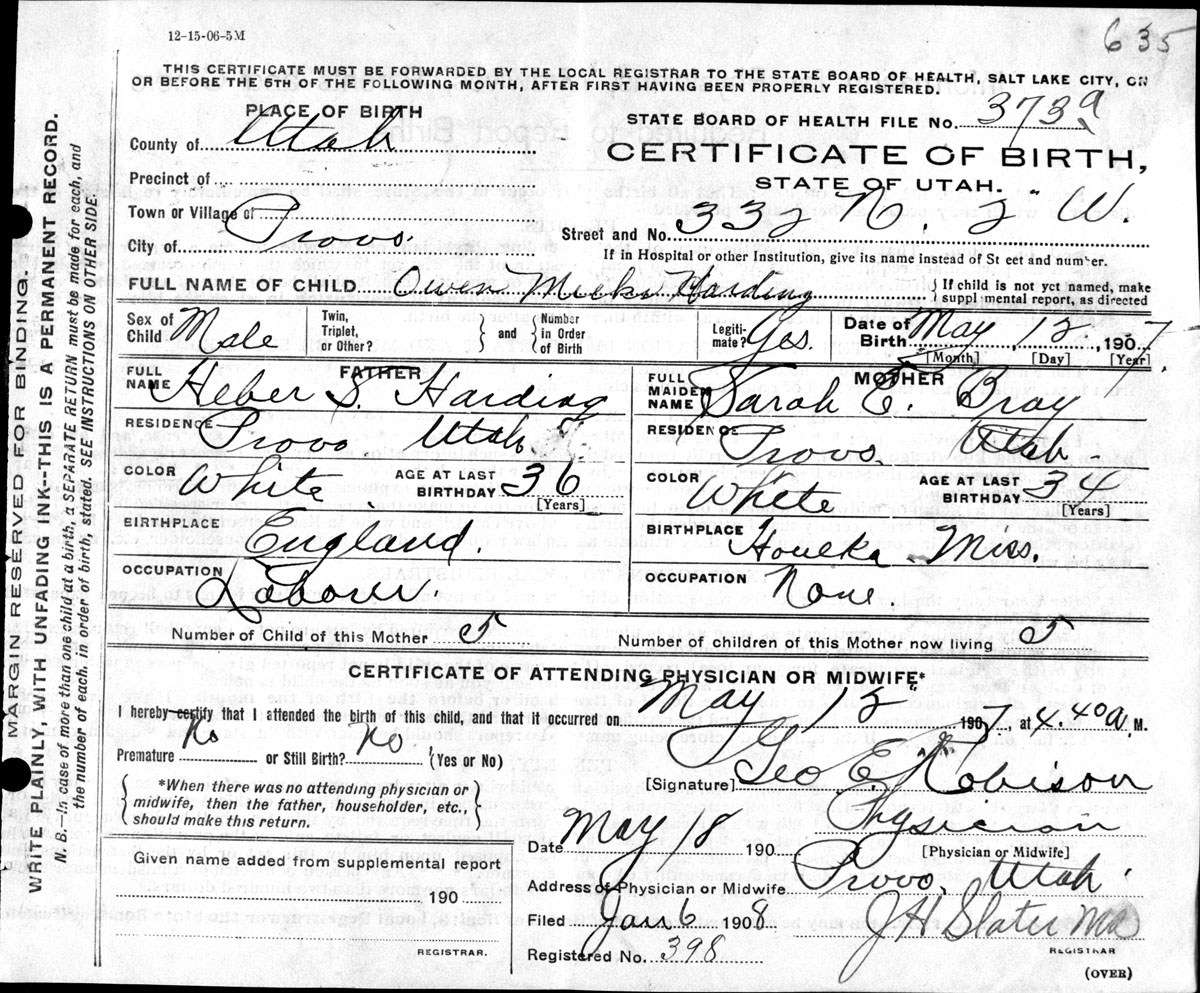 12-15-06-5M
635
THIS CERTIFICATE MUST BE FORWARDED BY THE LOCAL REGISTRAR TO THE STATE BOARD OF HEALTH, SALT LAKE CITY, ON
OR BEFORE THE 5TH OF THE FOLLOWING MONTH, AFTER FIRST HAVING BEEN PROPERLY REGISTERED.
PLACE OF BIRTH
County of Utah
Precinct of
Town or Village of
City of Provo.
STATE BOARD OF HEALTH FILE No. 3739
CERTIFICATE OF BIRTH,
STATE OF UTAH.
Street and No. 332 N. 2" W.
If in Hospital or other Institution, give its name instead of St eet and number.
FULL NAME OF CHILD Owen Meeks Harding
If child is not yet named, make
suppl mental report, as directed
Sex of Child Male
Twin, Triplet, or Other?
and
Number in Order of Birth
Legiti-mate? Yes.
Date of Birth May 12. 1907
[Month] [Day] [Year]
FATHER
FULL NAME Heber S. Harding
RESIDENCE Provo Utah
COLOR White AGE AT LAST BIRTHDAY 36
[Years]
BIRTHPLACE England.
OCCUPATION Laborer.
MOTHER
FULL MAIDEN NAME Sarah E. Bray
RESIDENCE Provo. Utah
COLOR White AGE AT LAST BIRTHDAY 34
[Years]
BIRTHPLACE Houlka Miss.
OCCUPATION None.
Number of Child of this Mother 5
Number of children of this Mother now living 5
CERTIFICATE OF ATTENDING PHYSICIAN OR MIDWIFE*
I hereby certify that I attended the birth of this child, and that it occurred on May 12 1907, at 4.40 a. M.
Premature No or Still Birth? No (Yes or No)
*When there was no attending physician or
midwife, then the father, householder, etc.,
should make this return.
[Signature] Geo E. Robison
Physician
[Physician or Midwife]
Date May 18 190
Address of Physician or Midwife Provo, Utah.
Filed Jan 6 1908 J H Slater MD
REGISTRAR
Registered No. 398
(OVER)
Given name added from supplemental report
190
REGISTRAR.
MARGIN RESERVED FOR BINDING.
WRITE PLAINLY, WITH UNFADING INK--THIS IS A PERMANENT RECORD.
N. B.--In case of more than one child at a birth, a SEPARATE RETURN must be made for each, and
the number of each, in order of birth, stated. SEE INSTRUCTIONS ON OTHER SIDE.